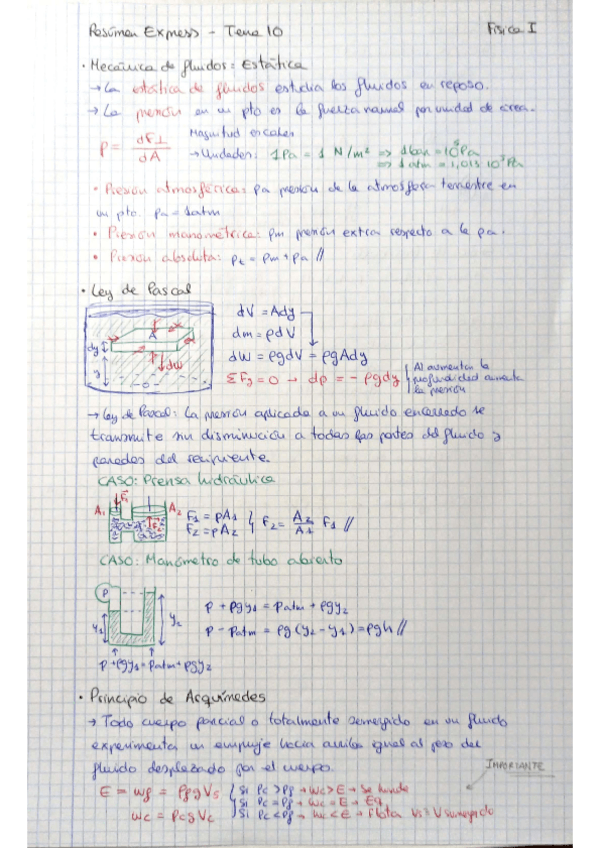 Resumen Express - Tema 10 Física I
· Mecánica de fluidos: Estática
→ La estática de fluidos estudia los fluidos en reposo.
→ La presión en un pto es la fuerza normal por unidad de área.
P = dF⊥/dA Magnitud escalar
→ Unidades: 1Pa = 1 N/m² => 1bar = 10⁵Pa
=> 1atm = 1,013·10⁵Pa
• Presión atmosférica: Pa presión de la atmósfera terrestre en
un pto. Pa = 1atm
• Presión manométrica: Pm presión extra respecto a la pa.
• Presión absoluta: Pt = Pm + Pa //
· Ley de Pascal
dV = Ady
dm = ρdV
dw = ρgdV = ρgAdy
ΣFy = 0 → dp = -ρgdy { Al aumentar la
profundidad aumenta
la presión
A
dy
y
dw
O
→ Ley de Pascal: La presión aplicada a un fluido encerrado se
transmite sin disminución a todas las partes del fluido y
paredes del recipiente.
CASO: Prensa hidráulica
A₁ F₁ A₂ F₂
F₁ = pA₁
F₂ = pA₂ } F₂ = A₂/A₁ F₁ //
CASO: Manómetro de tubo abierto
P
y₁ y₂
P + ρgy₁ = Patm + ρgy₂
P - Patm = ρg(y₂ - y₁) = ρgh //
P + ρgy₁ = Patm + ρgy₂
· Principio de Arquímedes
→ Todo cuerpo parcial o totalmente sumergido en un fluido
experimenta un empuje hacia arriba igual al peso del
fluido desplazado por el cuerpo.
IMPORTANTE
E = wf = ρfgVs { Si ρc > ρf → wc > E → Se hunde
Si ρc = ρf → wc = E → Eq
wc = ρcgVc Si ρc < ρf → wc < E → Flota Vs = Vsumergido